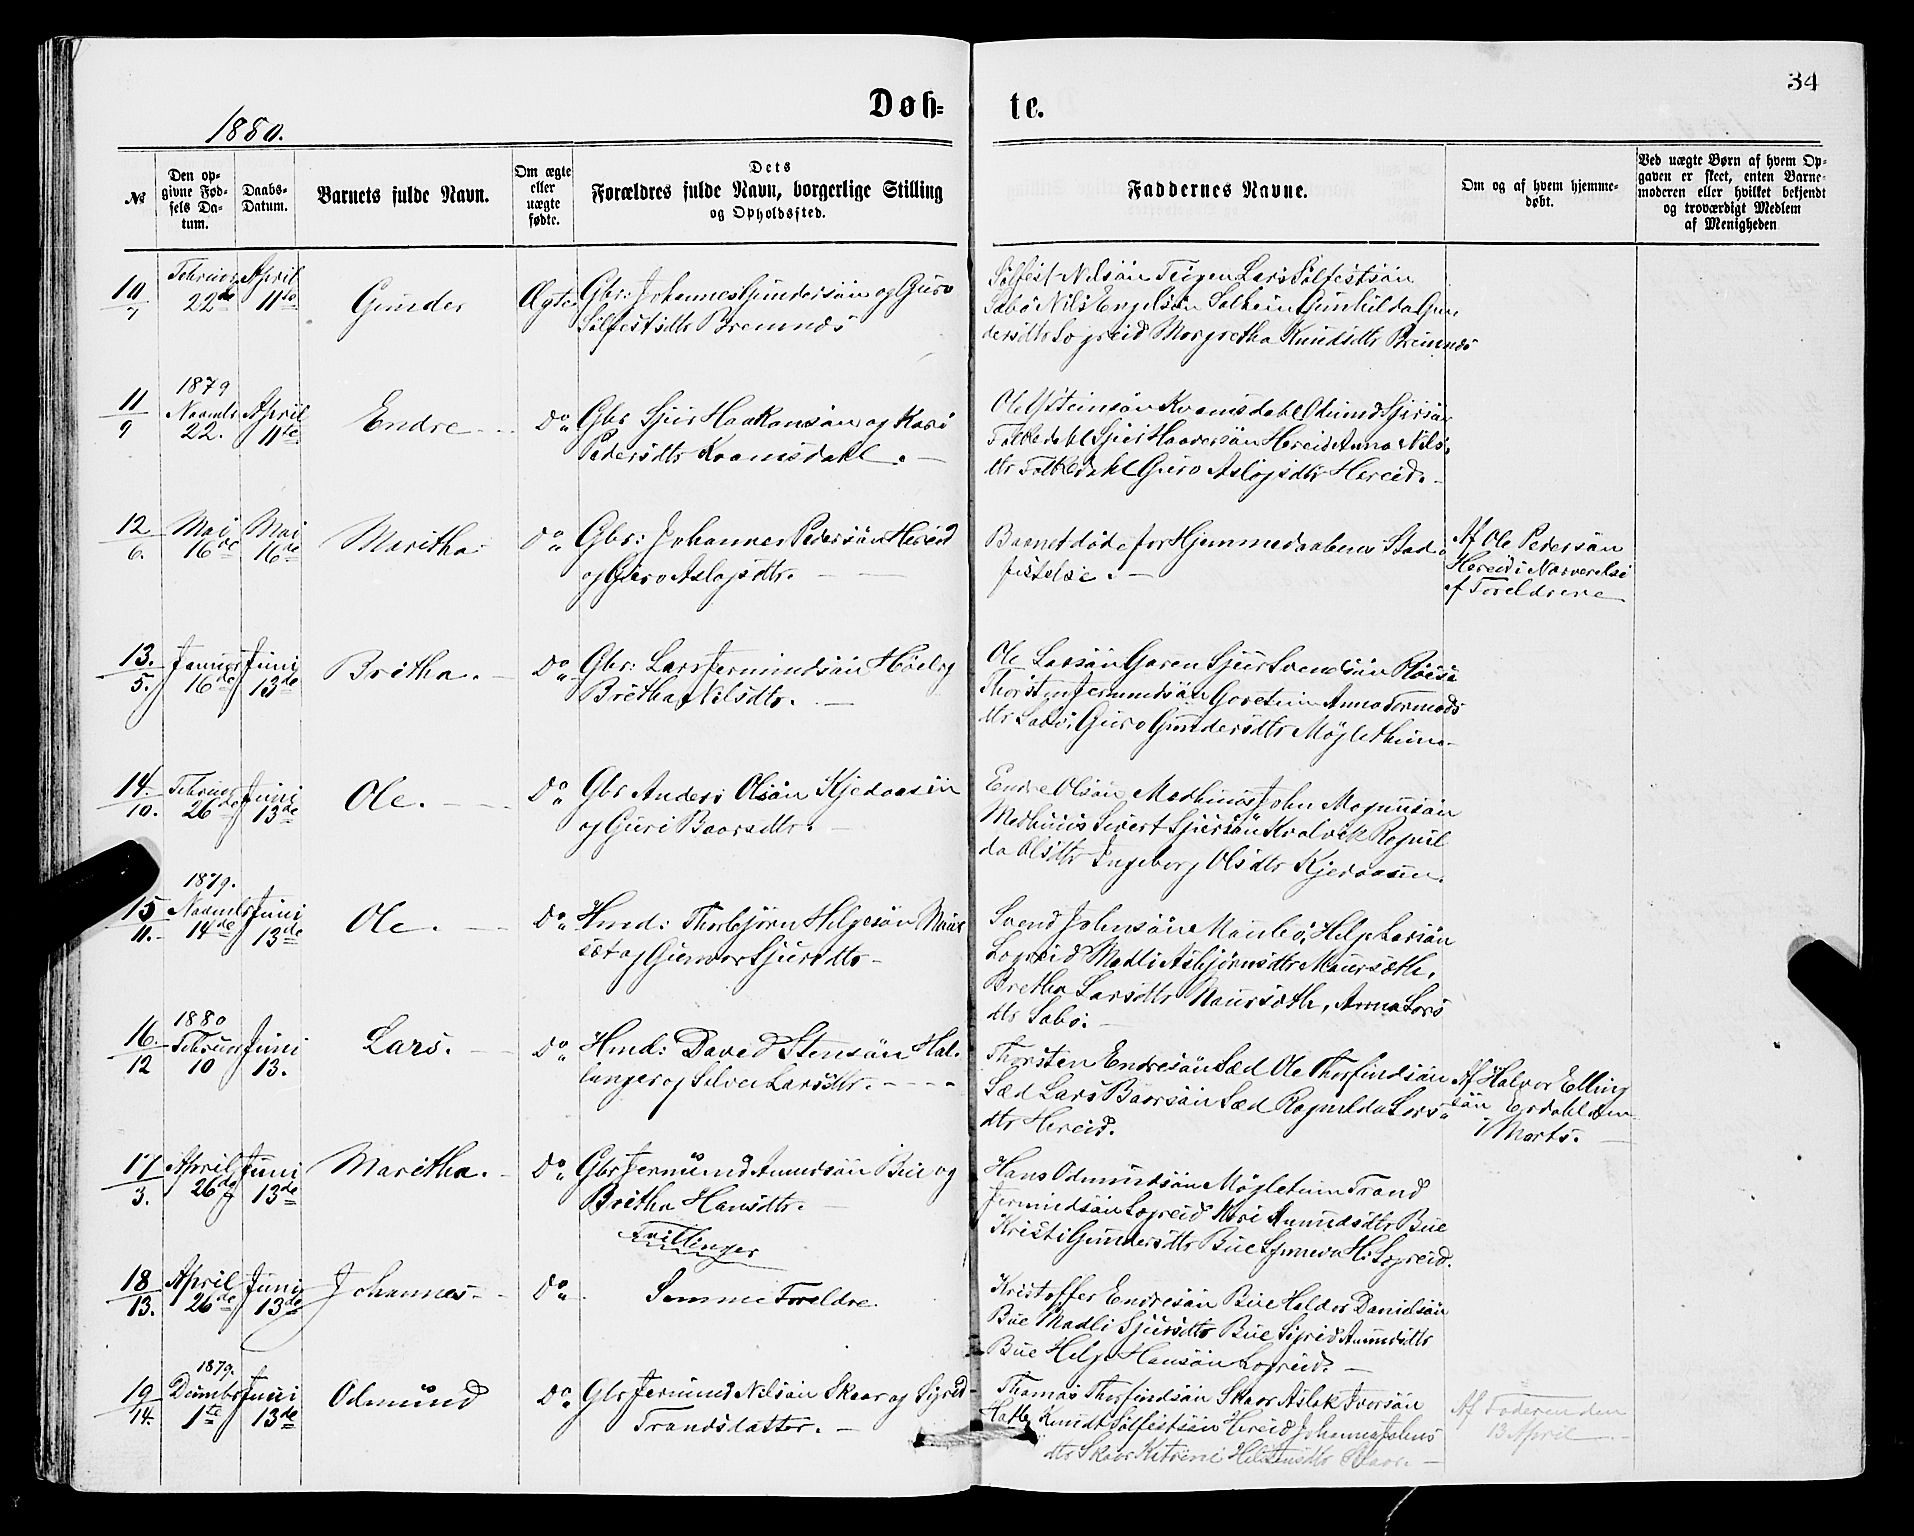 34
Døb- te.
1880.
№
Den op-
givne Fød-
sels Da-
tum.
Daabs-
Datum.
Barnets fulde Navn.
Om ægte
eller
uægte
fødte.
Dets
Forældres fulde Navn, borgerlige Stilling
og Opholdssted.
Faddernes Navne.
Om og af hvem hjemme-
døbt.
Ved uægte Børn af hvem Op-
gaven er skeet, enten Barne-
moderen eller hvilket bekjendt
og troværdigt Medlem
af Menigheden
10/7 Februar 22de April 11te Gunder Ægte
Gbr: Johannes Gundersön og Guro
Sölfestsdtr Bremnes
Sölfest Nilsön Teigen Lars Sölfestsön
Sæbö Nils Engelsön Salhein Gunhilda Gun
dersdtr Lægreid Margretha Knudsdtr Bremnes
11/9 1879 Novmbr 22. April 11te Endre Do
Gbr Sjur Haakonsön og Kari
Pedersdtr Kvamsdahl.
Ole Ysteinsön Kvamsdahl Odmund Sjursön
Falkedahl Sjur Haaversön Hereid Anna Nils
dtr Falkedahl Guro Aslagsdtr Hereid.
12/6. Mai 16de Mai 16de Maritha Do
Gbr: Johannes Pedersön Hereid
og Guro Aslagsdtr.
Barnet döde for Hjemmedaabens Stad-
festelse.
Af Ole Pedersön
Hereid i Nærværelse
af Foreldrene
13./5. Januar 16de Juni 13de Britha. Do
Gbr: Lars Jermundsön Höel og
Britha Nilsdtr.
Ole Larsön Garen Sjur Svendsön Röise
Thorsten Jermundsön Garetun Anna Tormods
dtr Sæbö, Guro Gundersdtr Möjlethun
14/10. Februar 26de Juni 13de Ole. Do
Gbr Anders Olsön Kjedaasen
og Guri Baarsdtr.
Endre Olsön Medhuus John Magnusön
Medhuus Sivert Sjursön Kvalvik Ragnil
da Olsdtr Ingeborg Olsdtr Kjedaasen.
15/11. 1879. Novmbr 14de Juni 13de Ole. Do
Hmd: Thorbjörn Helgesön Maur
set og Gunvor Sjursdtr
Svend Johnsön Maurbö, Helje Larsön
Lægreid Madli Asbjörnsdtr Maursæth.
Bretha Larsdtr Maursæth, Anna Lars
dtr Sæbö.
16./12 1880 Februar 10 Juni 13. Lars. Do
Hmd: David Stensön Hal-
langer og Silvei Larsdtr.
Thorsten Endresön Sæd Ole Thorfindsön
Sæd Lars Baarsön Sæd Ragnilda Lars-
dtr Hereid.
Af Halvor Elling
sön Erdahl den
7 Marts.
17/3. April 26de Juni 13de Maritha. Do
Gbr Jermund Amundsön Bue og
Britha Hansdtr.
Tvillinger
Hans Odmundsön Möjletun Trond
Jermundsön Lægreid Kari Amundsdtr Bue
Kristi Gundersdtr Bue Synneva H. Lægreid.
18/13. April 26de Juni 13de Johannes Do
Samme Foreldre
Kristoffer Endresön Bue Halder Danielsön
Bue Madli Sjursdtr Bue Sigrid Amundsdtr
Bue Helje Hansön Lægreid.
19/14. 1879. Decmbr 1ste Juni 13de Odmund Do
Gbr Jermund Nilsön Skaar og Sigrid
Trondsdatter.
Thomas Thorfindsön Skaar Aslak Ivarsön
Hatle Knudt Sölfestsön Hereid Johanna Johns
dtr Skaar Katrine Skaar.
Af Faderen den
13 April